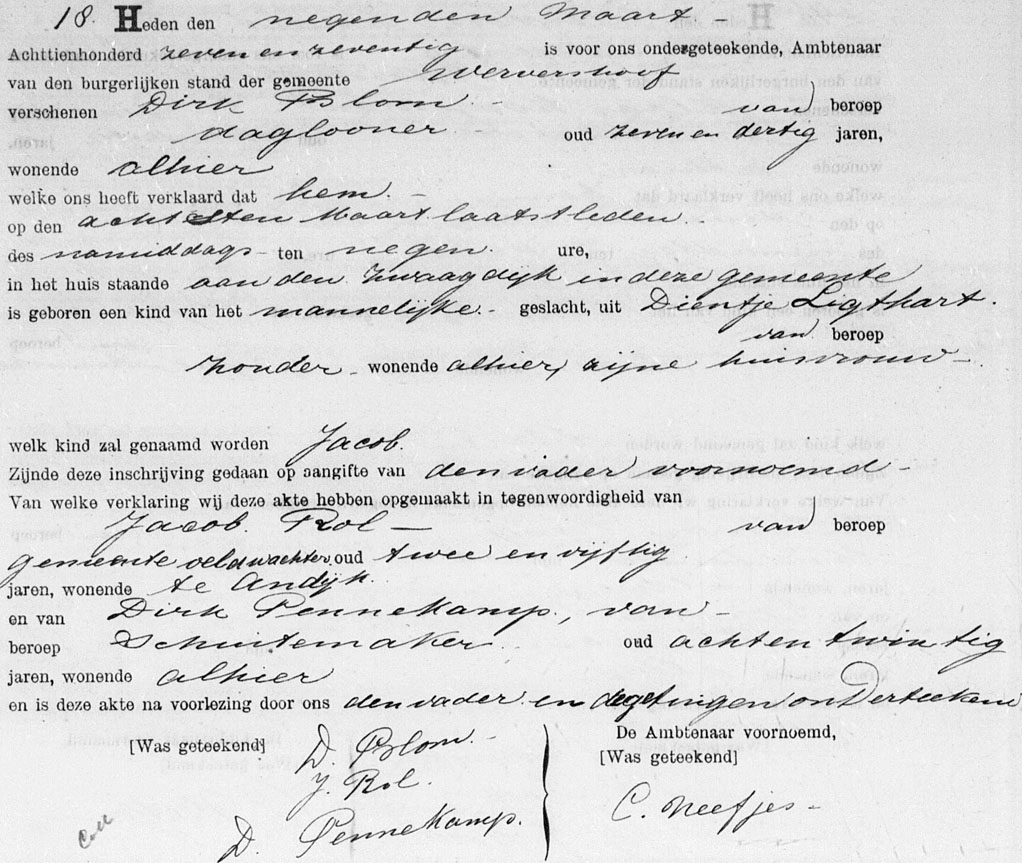 18. Heden den negenden Maart -
Achttienhonderd zeven en zeventig is voor ons ondergeteekende, Ambtenaar
van den burgerlijken stand der gemeente Wervershoef
verschenen Dirk Blom - van beroep
daglooner - oud zeven en dertig jaren,
wonende alhier
welke ons heeft verklaard dat hem. -
op den achtsten Maart laatstleden -
des namiddags - ten negen ure,
in het huis staande aan den Zwaagdijk in deze gemeente
is geboren een kind van het mannelijke. - geslacht, uit Dientje Ligthart.
van beroep
zonder - wonende alhier, zijne huisvrouw -
welk kind zal genaamd worden Jacob.
Zijnde deze inschrijving gedaan op aangifte van den vader voornoemd -
Van welke verklaring wij deze akte hebben opgemaakt in tegenwoordigheid van
Jacob Rol - van beroep
gemeente veldwachter, oud twee en vijftig
jaren, wonende te Andijk.
en van Dirk Pennekamp, van -
beroep Schuitemaker. oud acht en twintig
jaren, wonende alhier
en is deze akte na voorlezing door ons den vader en de getuigen onderteekend
De Ambtenaar voornoemd,
[Was geteekend] D. Blom. - [Was geteekend]
J. Rol.
D. Pennekamp. C. Neefjes -
Coll